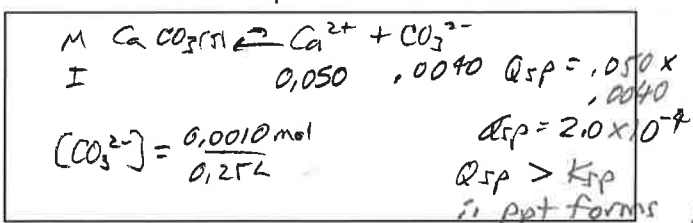 M CaCO₃(s) ⇌ Ca²⁺ + CO₃²⁻
I 0,050 .0040 Qsp = .050 x
.0040
[CO₃²⁻] = 0,0010 mol / 0,25L
Qsp = 2.0 x 10⁻⁴
Qsp > Ksp
∴ ppt forms